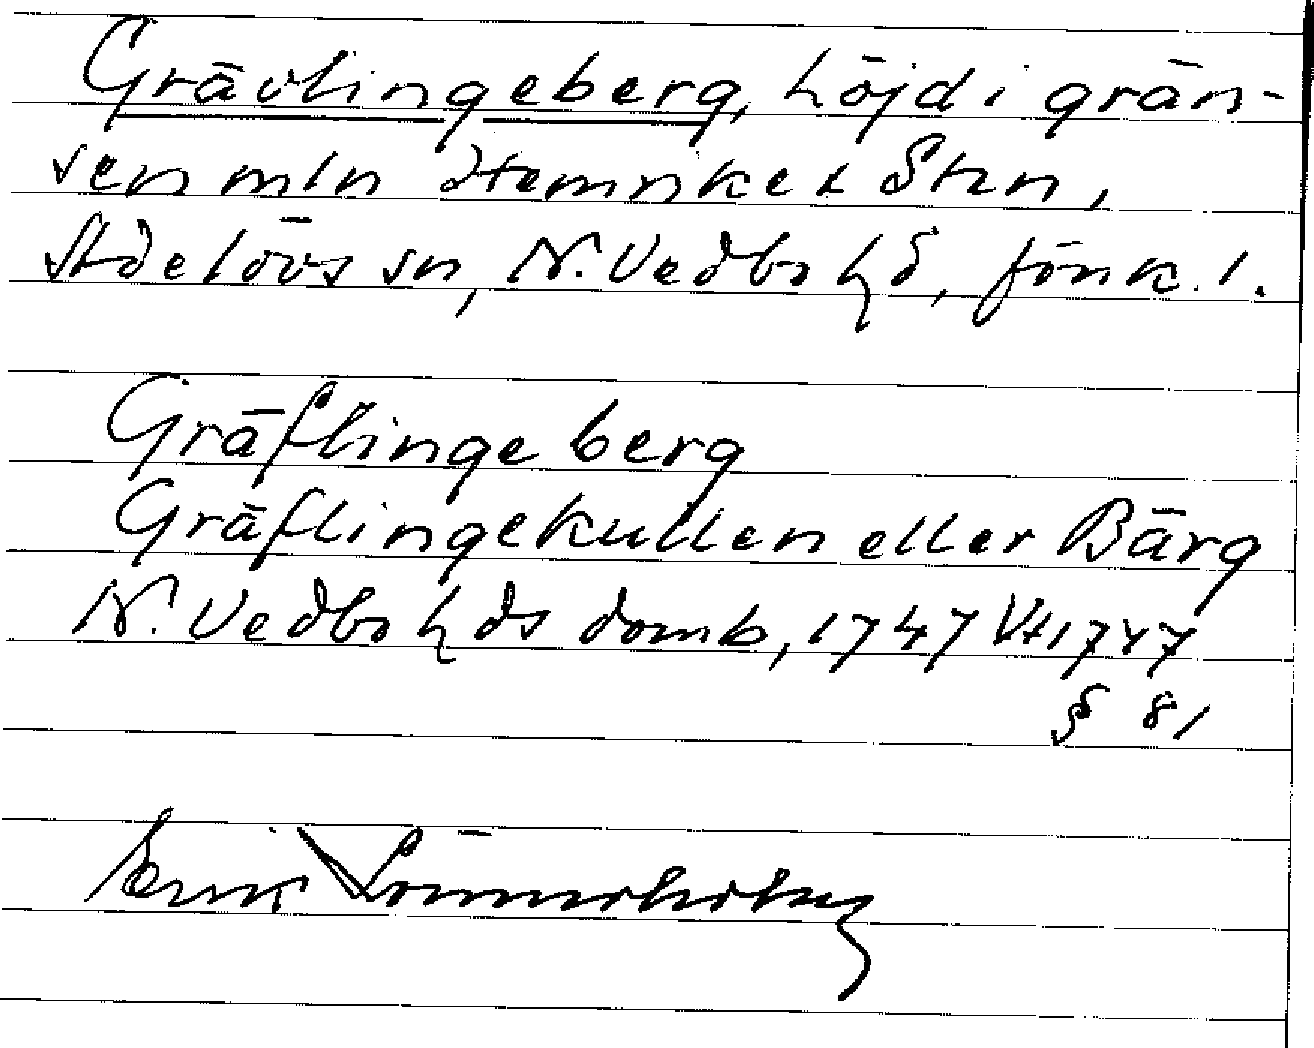 Grävlingeberg, höjd i grän-
sen mln Hemrike &
sn, N. Vedbo hd, Jönk. l.
Gräflingeberg
Gräflingekullen eller Bärg
N. Vedbo hds domb, 1747 Vt 1747
§ 81
Erik